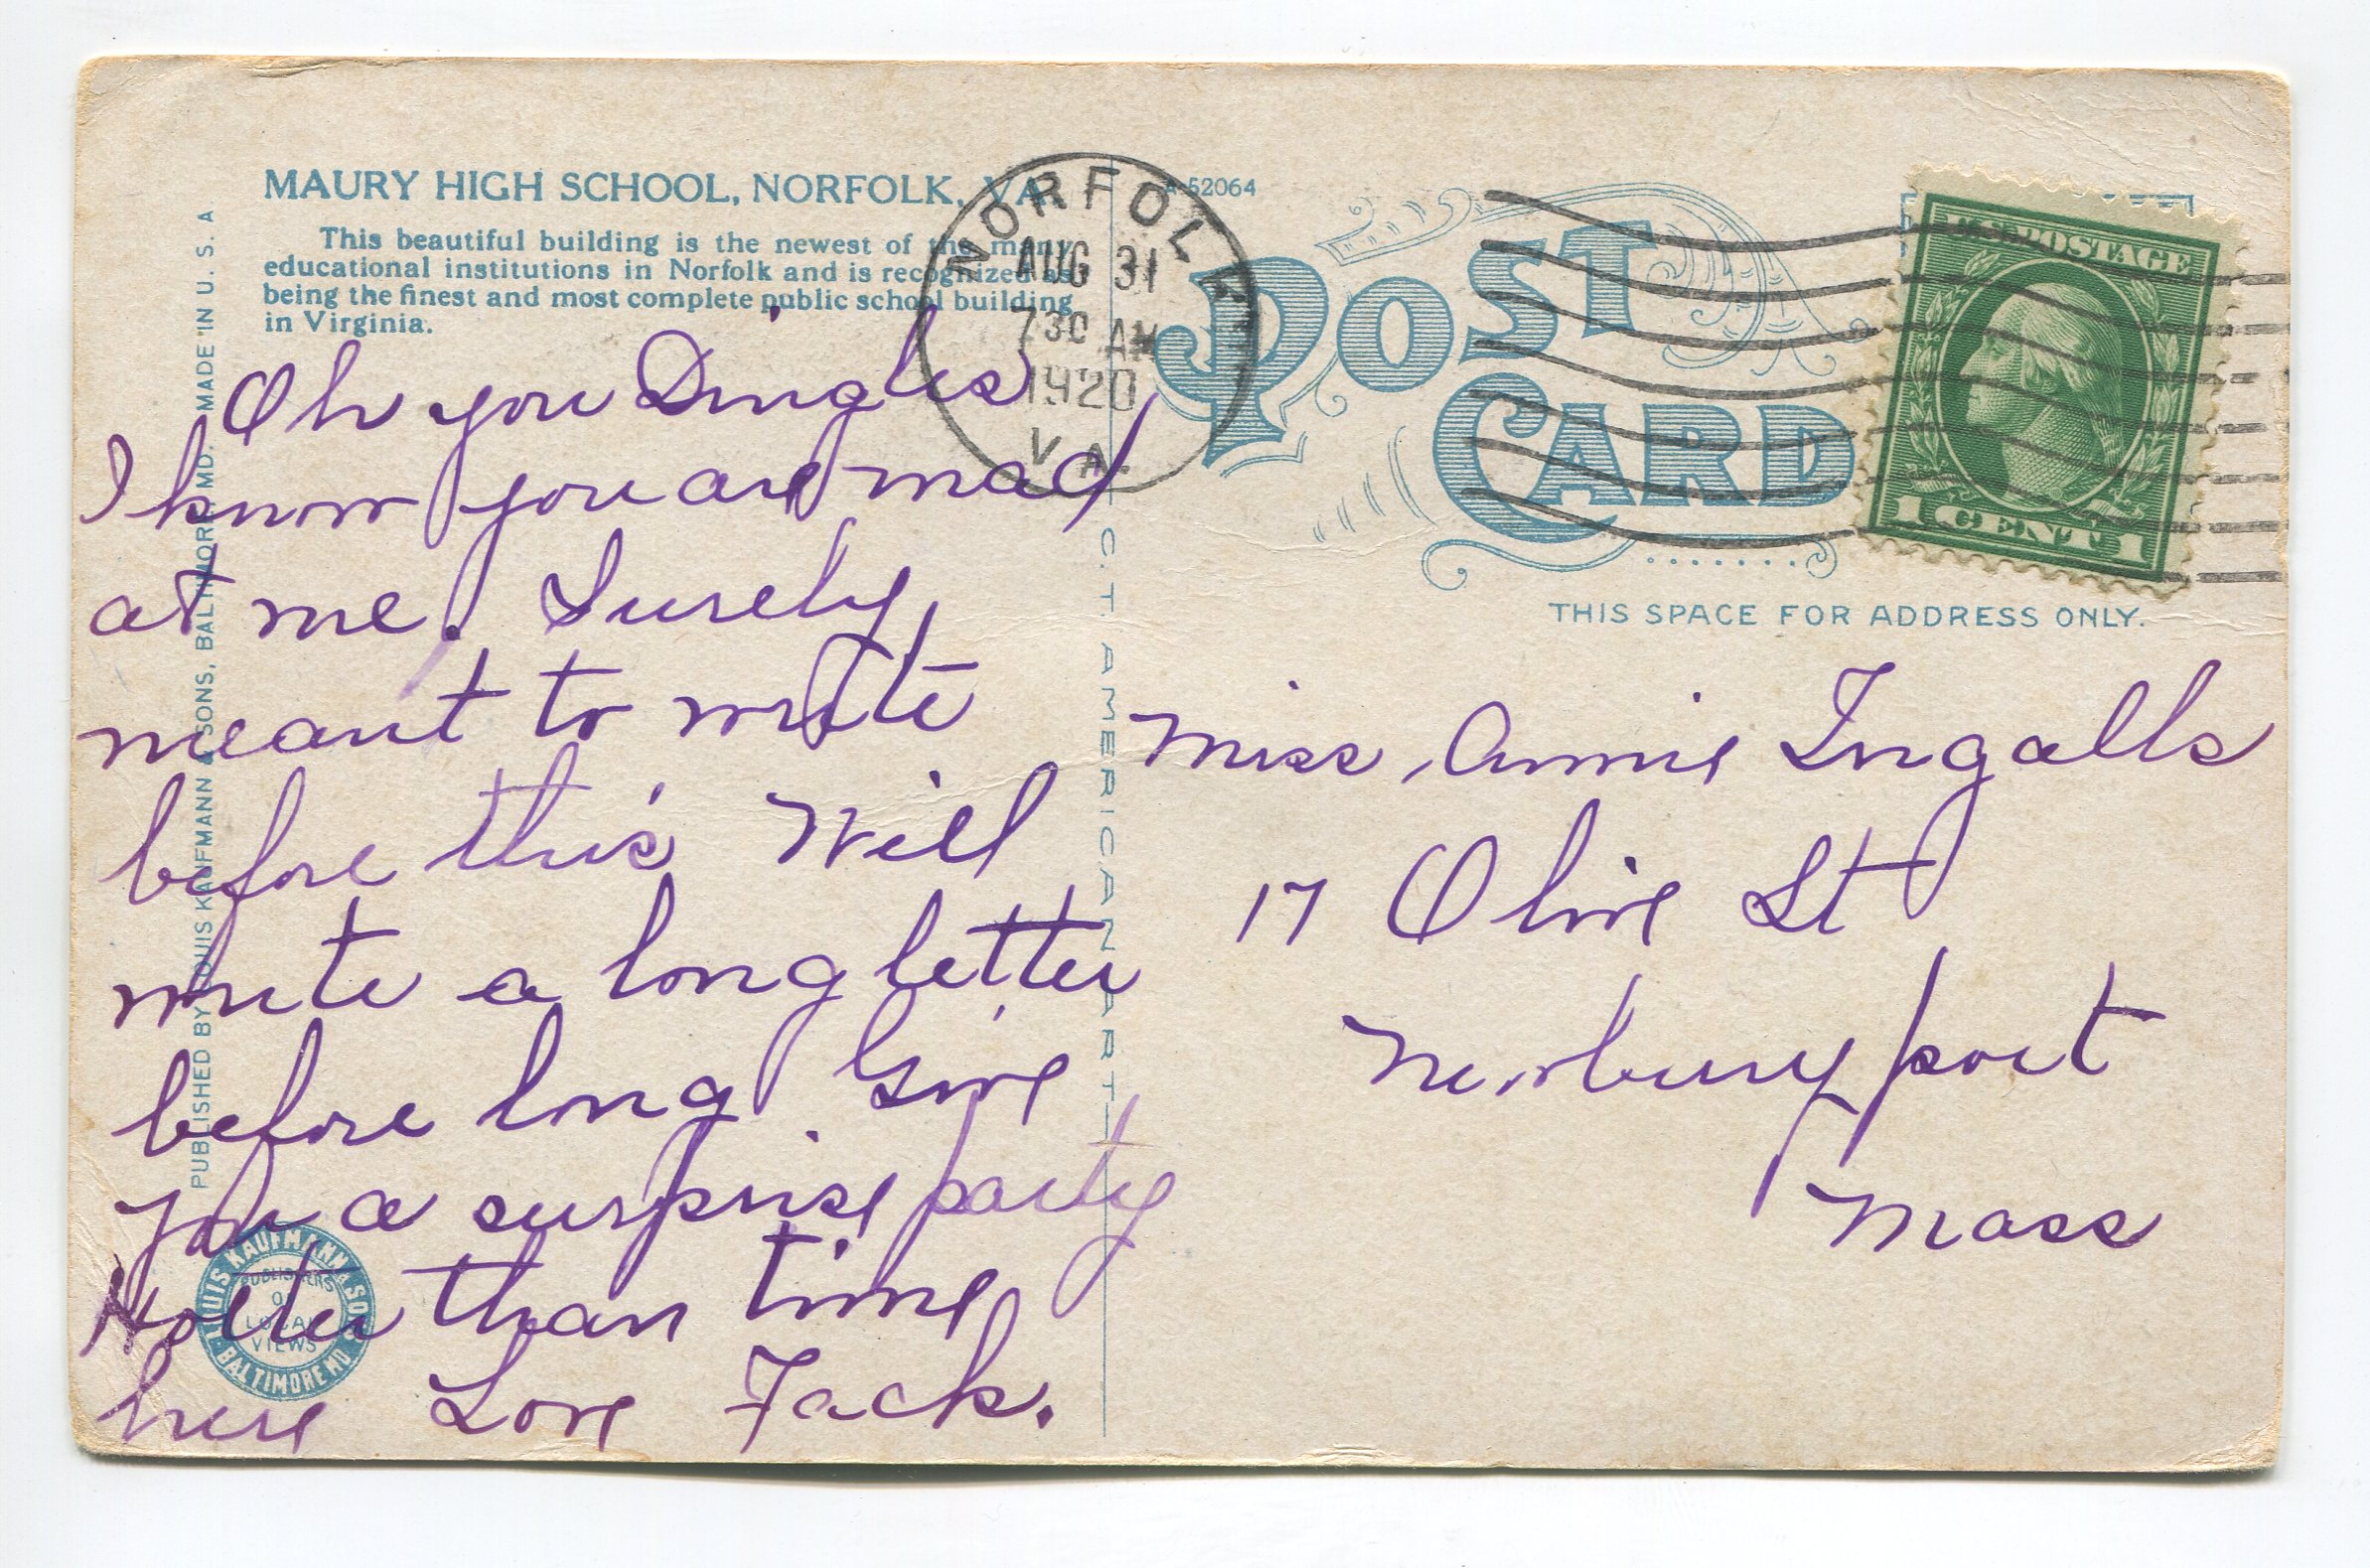 MAURY HIGH SCHOOL, NORFOLK, VA.
This beautiful building is the newest of the many
educational institutions in Norfolk and is recognized as
being the finest and most complete public school building
in Virginia.
A-52064
NORFOLK
AUG 31
730 AM
1920
VA.
POST
CARD
U.S. POSTAGE
1 CENT 1
THIS SPACE FOR ADDRESS ONLY.
Oh you Dingles
I know you are mad
at me. Surely
meant to write
before this Will
write a long letter
before long Give
you a surprise party
Hotter than time
here Love Jack.
Miss Annie Ingalls
17 Olive St
Newburyport
Mass
PUBLISHED BY LOUIS KAUFMANN & SONS, BALTIMORE, MD. MADE IN U. S. A.
C. T. AMERICAN ART
LOUIS KAUFMANN & SONS
PUBLISHERS
OF
LOCAL
VIEWS
BALTIMORE MD